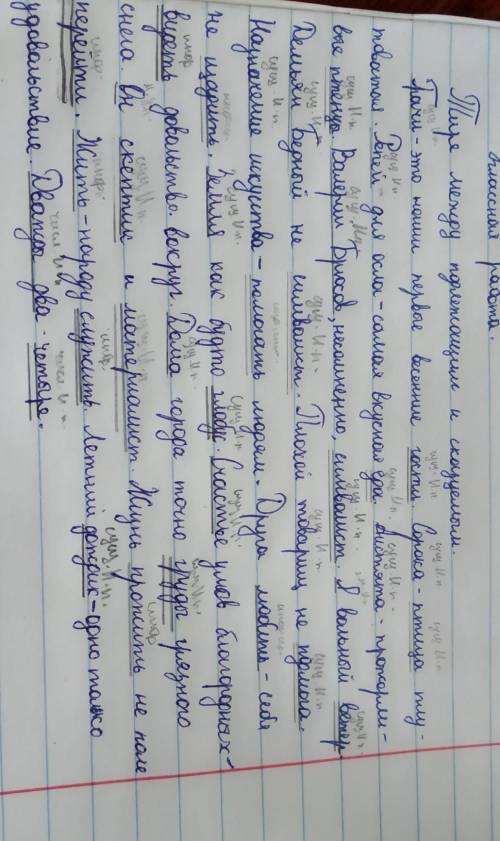 работа.
Тире между подлежащим и сказуемым.
Грачи - это наши первые весенние гости. Сорока - птица плу-
товатая. Репей - для осла - самая вкусная еда. Аистята - прожорли-
вые птицы. Валерий Брюсов, несомненно, символист. Я вольный ветер.
Демьян Бедный не символист. Плохой товарищ не подмога.
Назначение искусства - помогать людям. Друга любить - себя
не щадить. Земля как будто глобус. Счастье умов благородных -
видеть довольство вокруг. Дома города точно груды грязного
снега. Он скептик и материалист. Жизнь прожить не поле
перейти. Жить - народу служить. Летний дождик - одно только
удовольствие. Дважды два - четыре.